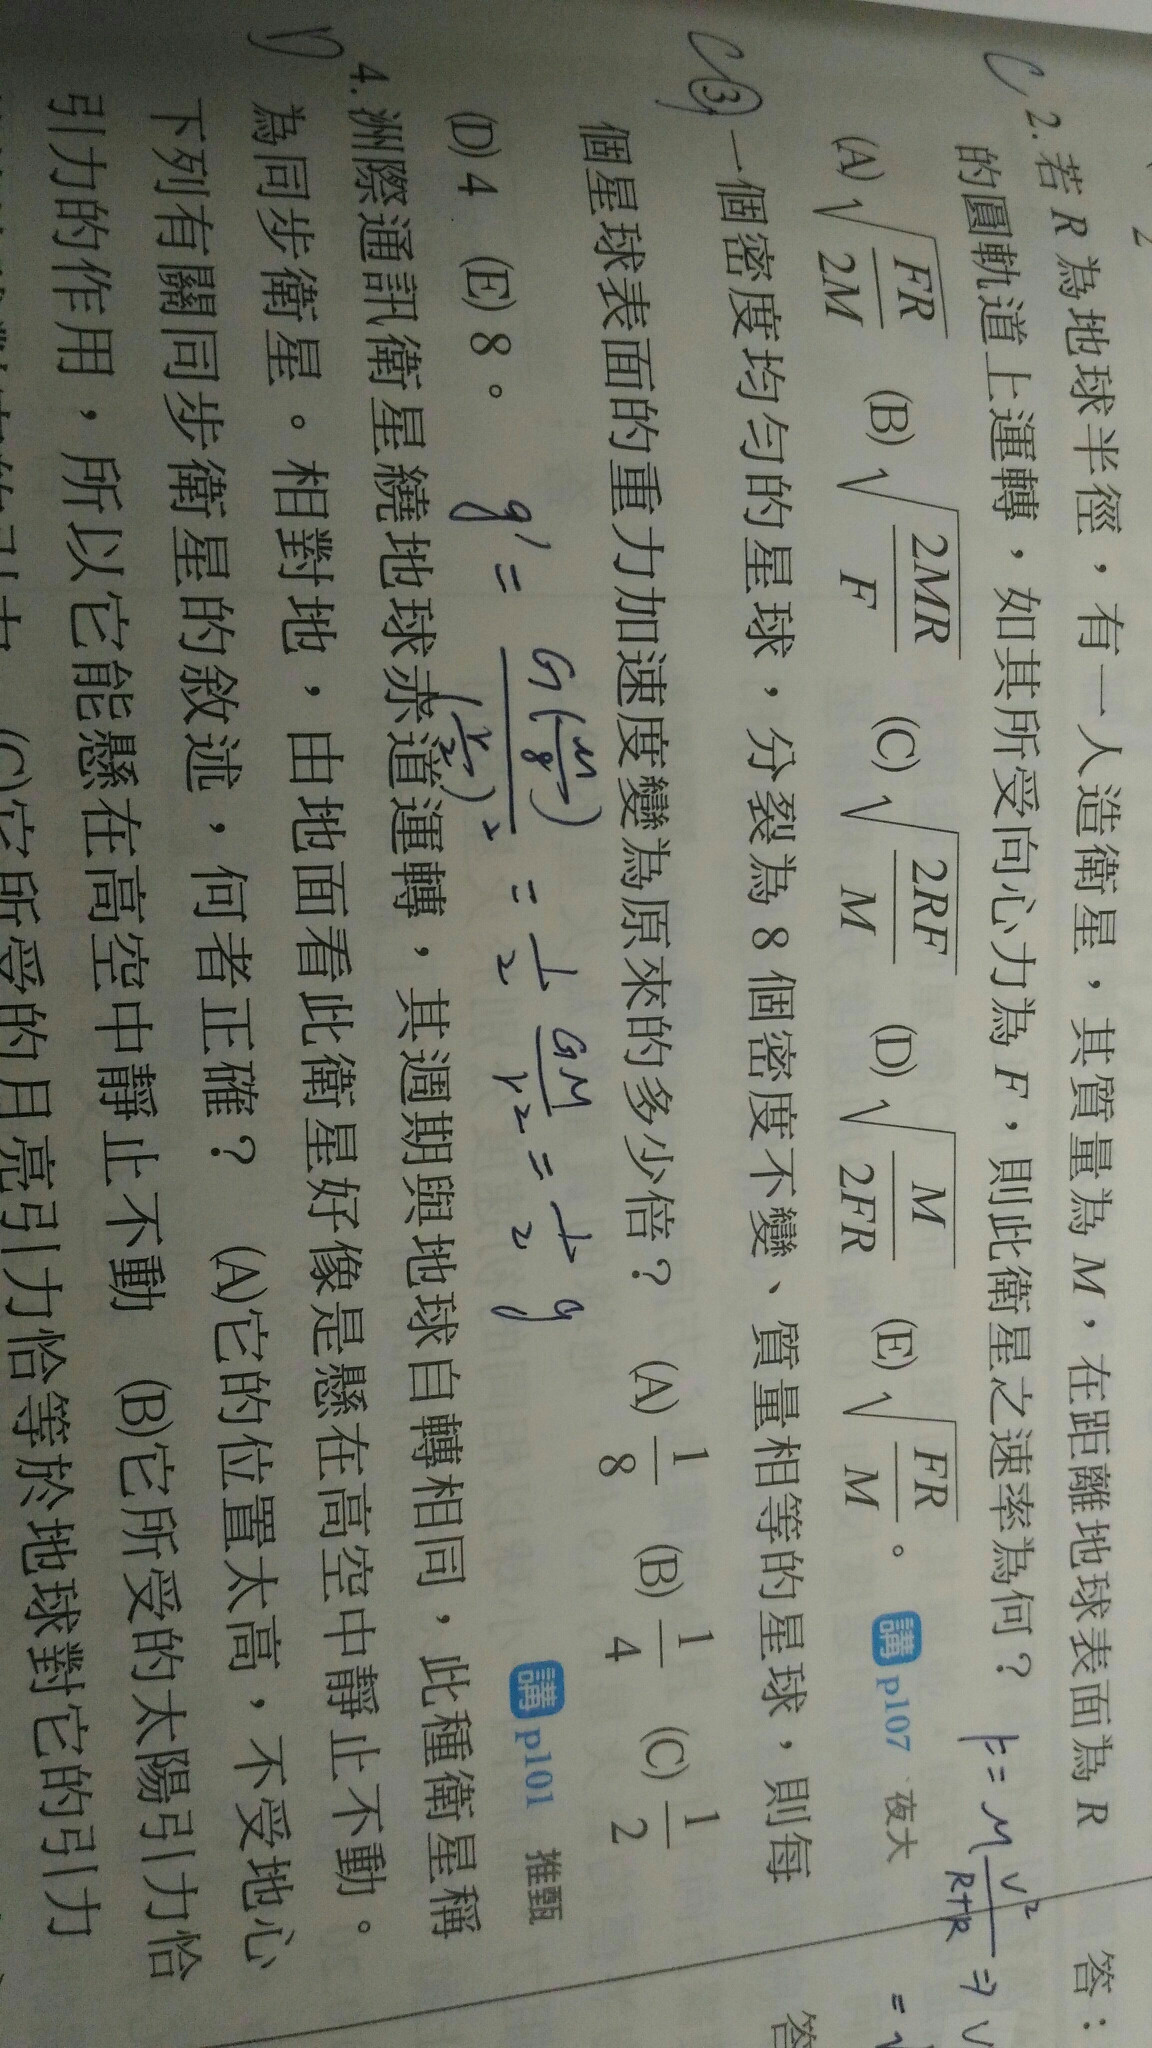 C 2.若R為地球半徑,有一人造衛星,其質量為M,在距離地球表面為R 答:
的圓軌道上運轉,如其所受向心力為F,則此衛星之速率為何? F=M V²/(R+R) ⇒ V
(A)√(FR/2M) (B)√(2MR/F) (C)√(2RF/M) (D)√(M/2FR) (E)√(FR/M)。 講 p107 夜大 =√
C ③ 一個密度均勻的星球,分裂為8個密度不變、質量相等的星球,則每 答
個星球表面的重力加速度變為原來的多少倍? (A)1/8 (B)1/4 (C)1/2
(D)4 (E)8。 講 p101 推甄
g' = G(M/8)/(r/2)² = 1/2 GM/r² = 1/2 g
D 4.洲際通訊衛星繞地球赤道運轉,其週期與地球自轉相同,此種衛星稱
為同步衛星。相對地,由地面看此衛星好像是懸在高空中靜止不動。
下列有關同步衛星的敘述,何者正確? (A)它的位置太高,不受地心
引力的作用,所以它能懸在高空中靜止不動 (B)它所受的太陽引力恰
(C)它所受的月亮引力恰等於地球對它的引力